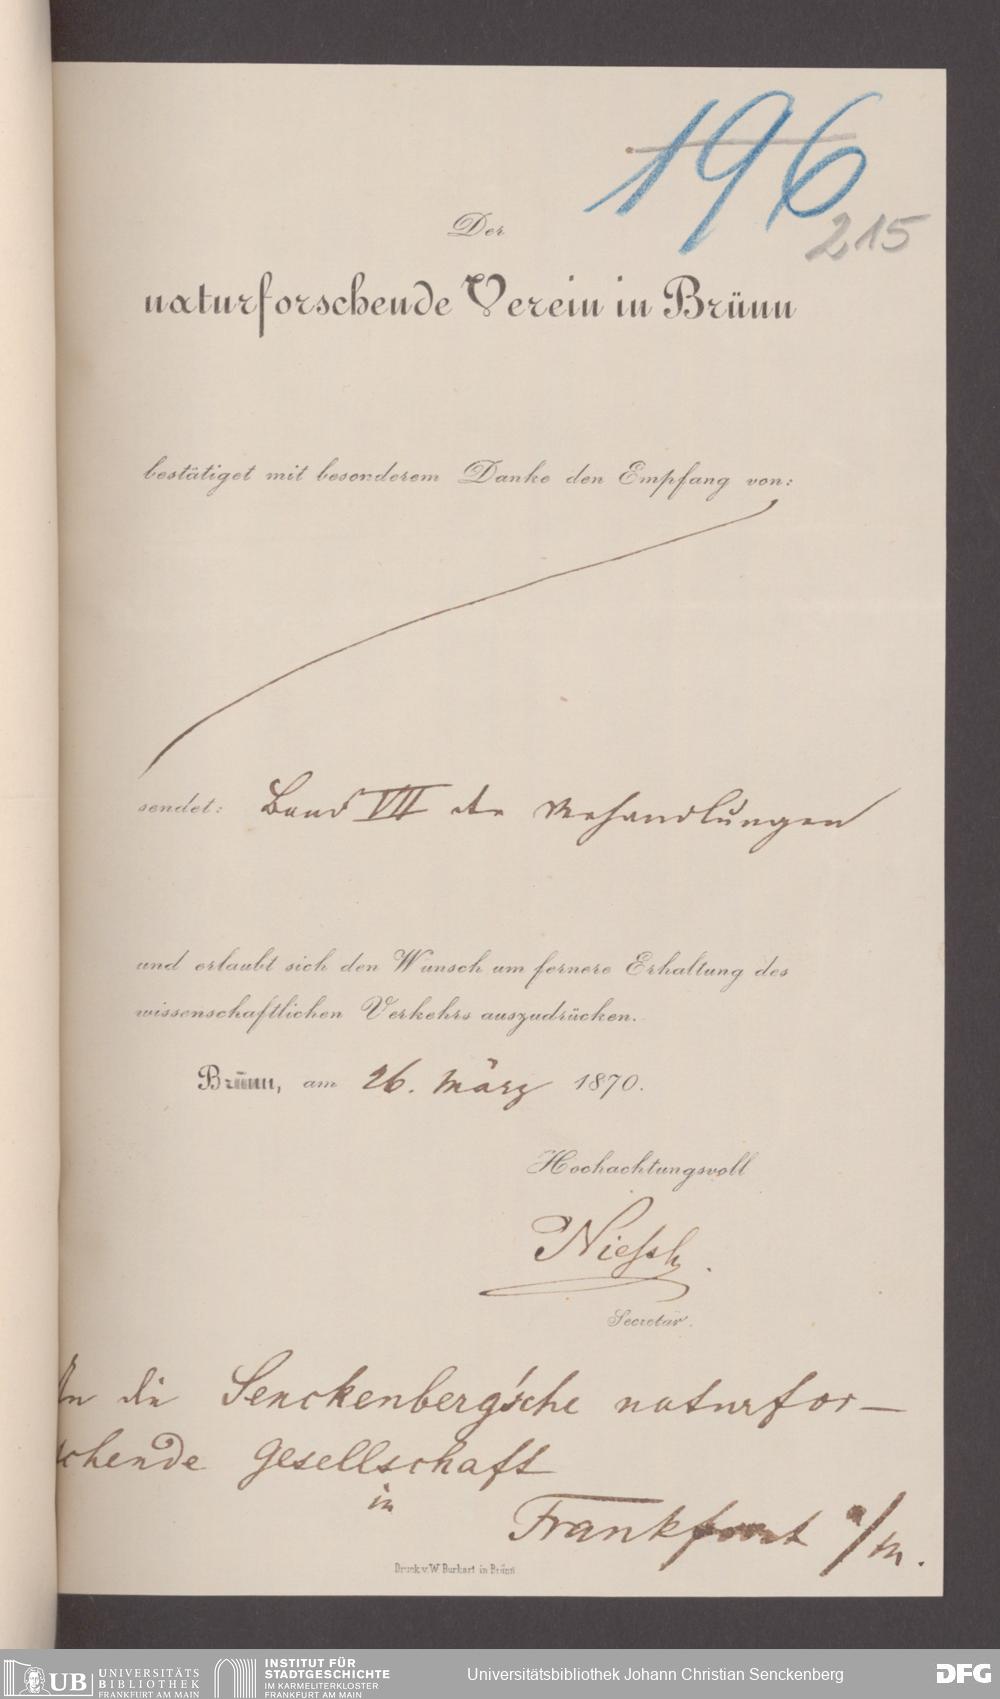 196
215
Der
naturforschende Verein in Brünn
bestätiget mit besonderem Danke den Empfang von:
sendet: Band VII der Verhandlungen
und erlaubt sich den Wunsch um fernere Erhaltung des
wissenschaftlichen Verkehrs auszudrücken.
Brünn, am 26. März 1870.
Hochachtungsvoll
Niessl
Secretär.
An die Senckenberg'sche naturfor-
schende Gesellschaft
in
Frankfurt a/M.
Druck v. W. Burkart in Brünn
UB UNIVERSITÄTS
BIBLIOTHEK
FRANKFURT AM MAIN
INSTITUT FÜR
STADTGESCHICHTE
IM KARMELITERKLOSTER
FRANKFURT AM MAIN
Universitätsbibliothek Johann Christian Senckenberg
DFG